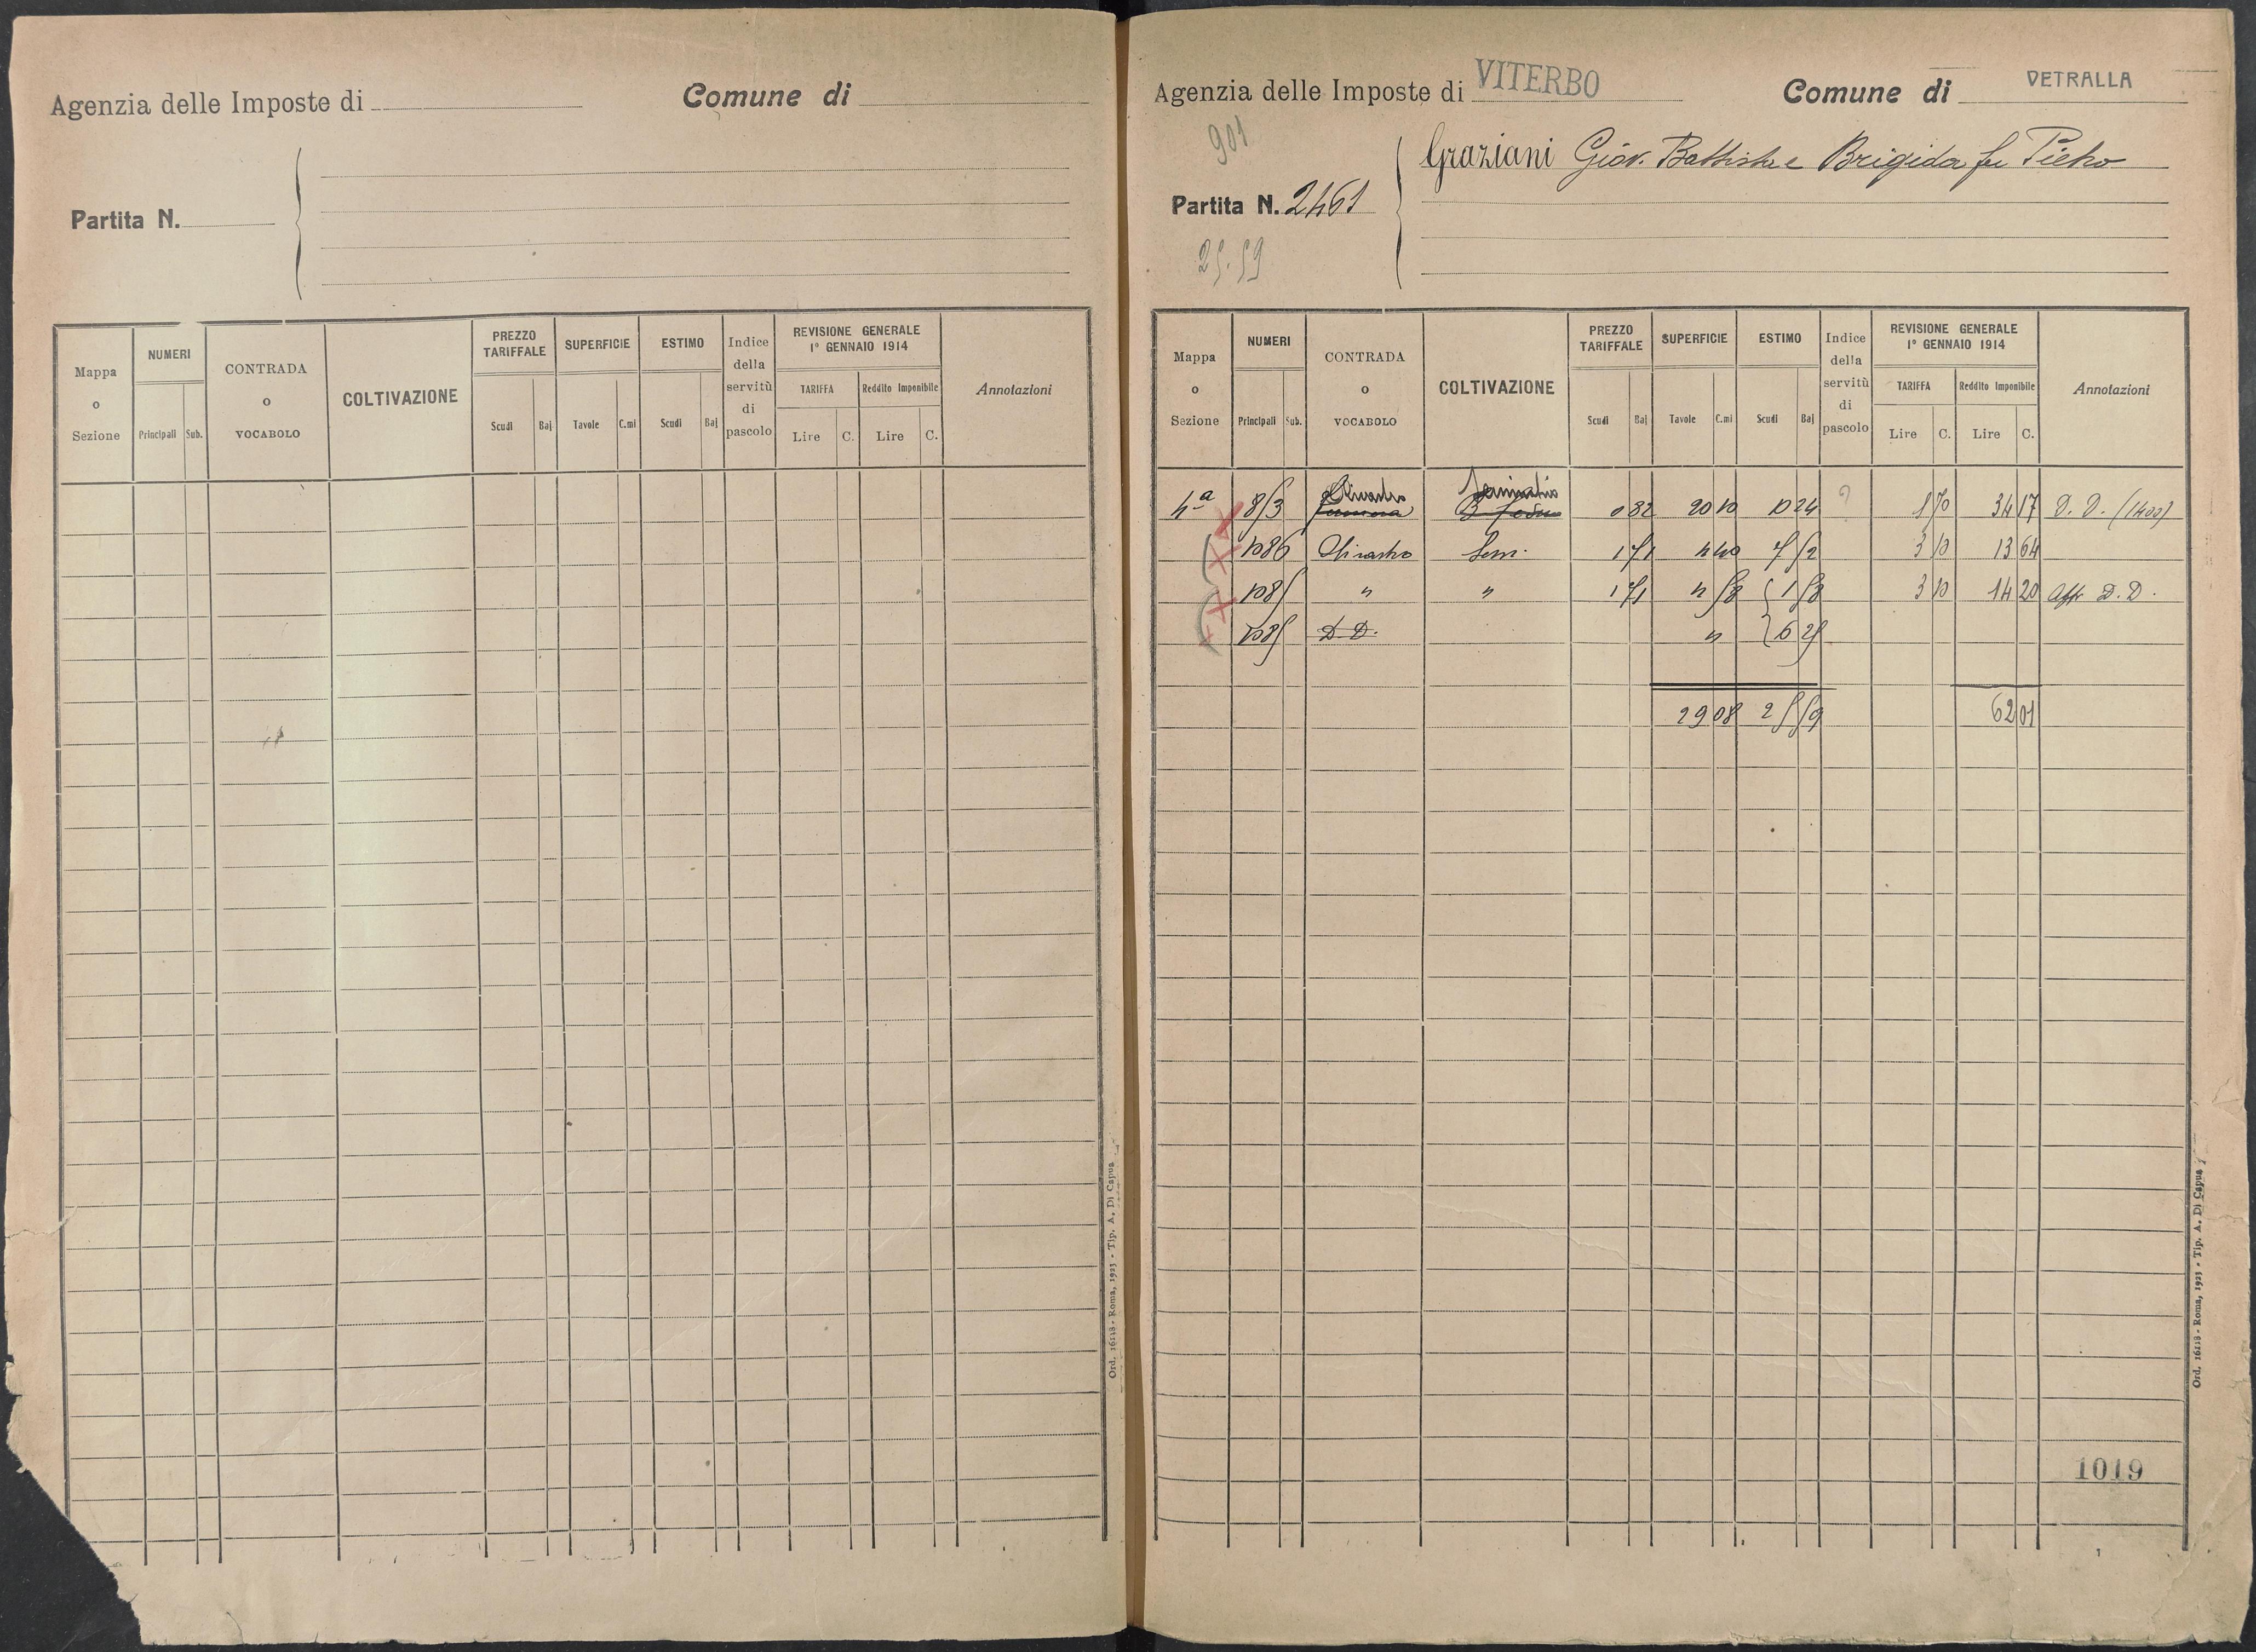 Agenzia delle Imposte di
Comune di
Partita N.
Mappa o Sezione
NUMERI
Principali
Sub.
CONTRADA o VOCABOLO
COLTIVAZIONE
PREZZO TARIFFALE
Scudi
Baj
SUPERFICIE
Tavole
C.mi
ESTIMO
Scudi
Baj
Indice della servitù di pascolo
REVISIONE GENERALE
1º GENNAIO 1914
TARIFFA
Reddito Imponibile
Lire
C.
Lire
C.
Annotazioni
Ord. 16118 - Roma, 1923 - Tip. A. Di Capua
Agenzia delle Imposte di VITERBO
Comune di VETRALLA
901
Graziani Giov. Battista e Brigida fu Pietro
Partita N. 2461
25.59
Mappa o Sezione
NUMERI
Principali
Sub.
CONTRADA o VOCABOLO
COLTIVAZIONE
PREZZO TARIFFALE
Scudi
Baj
SUPERFICIE
Tavole
C.mi
ESTIMO
Scudi
Baj
Indice della servitù di pascolo
REVISIONE GENERALE
1º GENNAIO 1914
TARIFFA
Reddito Imponibile
Lire
C.
Lire
C.
Annotazioni
Olivastro Seminativo
4ª 853 0 82 20 10 10 24 ? 1 70 34 17 D. D. (1400)
1086 Olivastro Sem. 1 71 4 40 7 52 3 10 13 64
1085 " " 1 71 4 58 1 58 3 10 14 20 Aff. D. D.
1085 D. D. " 6 25
29 08 25 59 62 01
1019
Ord. 16118 - Roma, 1923 - Tip. A. Di Capua